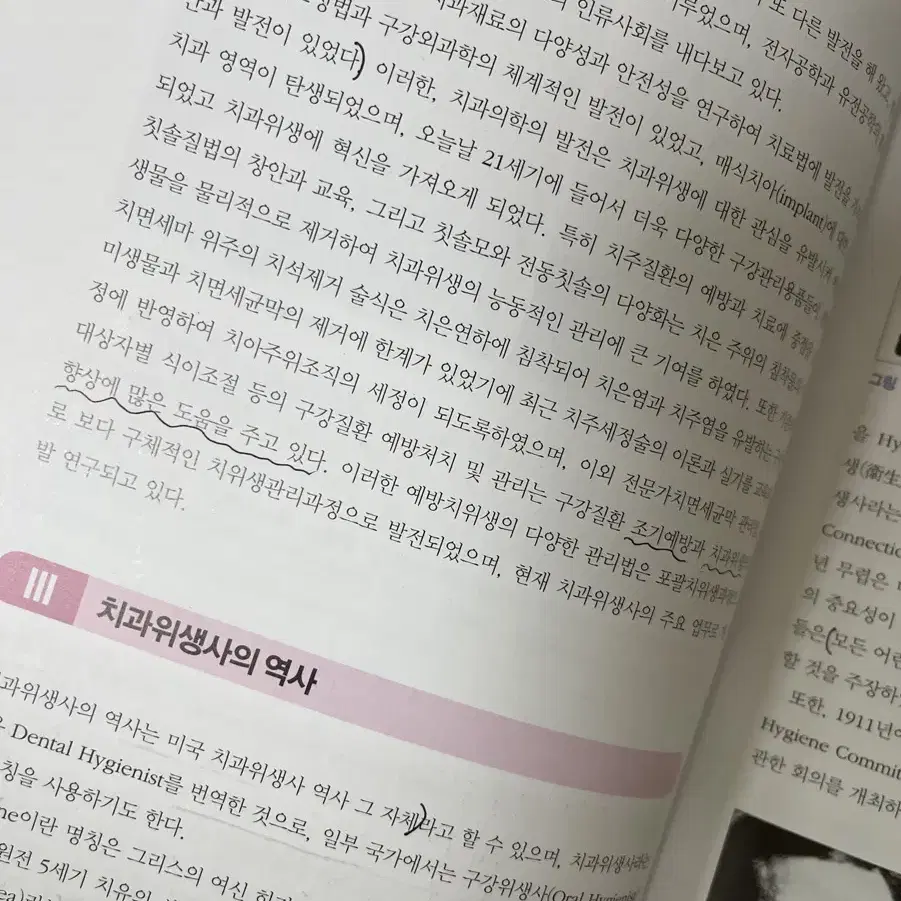 또 다른 발전을 해 왔고
루었으며, 전자공학과 유전공학의
의 인류사회를 내다보고 있다.
치과재료의 다양성과 안전성을 연구하여 치료법에 발전을
방법과 구강외과학의 체계적인 발전이 있었고, 매식치아(implant)에 대한
발전이 있었다) 이러한, 치과의학의 발전은 치과위생에 대한 관심을 유발시켜
치과 영역이 탄생되었으며, 오늘날 21세기에 들어서 더욱 다양한 구강관리용품들이
되었고 치과위생에 혁신을 가져오게 되었다. 특히 치주질환의 예방과 치료에 중점을
칫솔질법의 창안과 교육, 그리고 칫솔모와 전동칫솔의 다양화는 치은 주위의 침착물
생물을 물리적으로 제거하여 치과위생의 능동적인 관리에 큰 기여를 하였다. 또한
치면세마 위주의 치석제거 술식은 치은연하에 침착되어 치은염과 치주염을 유발하는
미생물과 치면세균막의 제거에 한계가 있었기에 최근 치주세정술의 이론과 실기를
정에 반영하여 치아주위조직의 세정이 되도록하였으며, 이외 전문가치면세균막
대상자별 식이조절 등의 구강질환 예방처치 및 관리는 구강질환 조기예방과
향상에 많은 도움을 주고 있다. 이러한 예방치위생의 다양한 관리법은
로 보다 구체적인 치위생관리과정으로 발전되었으며, 현재 치과위생사의 주요 업무로
발 연구되고 있다.
III 치과위생사의 역사
과위생사의 역사는 미국 치과위생사 역사 그 자체)라고 할 수 있으며,
Dental Hygienist를 번역한 것으로, 일부 국가에서는 구강위생사(Oral Hygienist
칭을 사용하기도 한다.
ne이란 명칭은 그리스의 여신
원전 5세기 치유의
그림
을 Hy
생(衛生
생사라는
Connectic
년 무렵은
의 중요성이
들은(모든 어린
할 것을 주장하
또한, 1911년
Hygiene Commit
관한 회의를 개최하